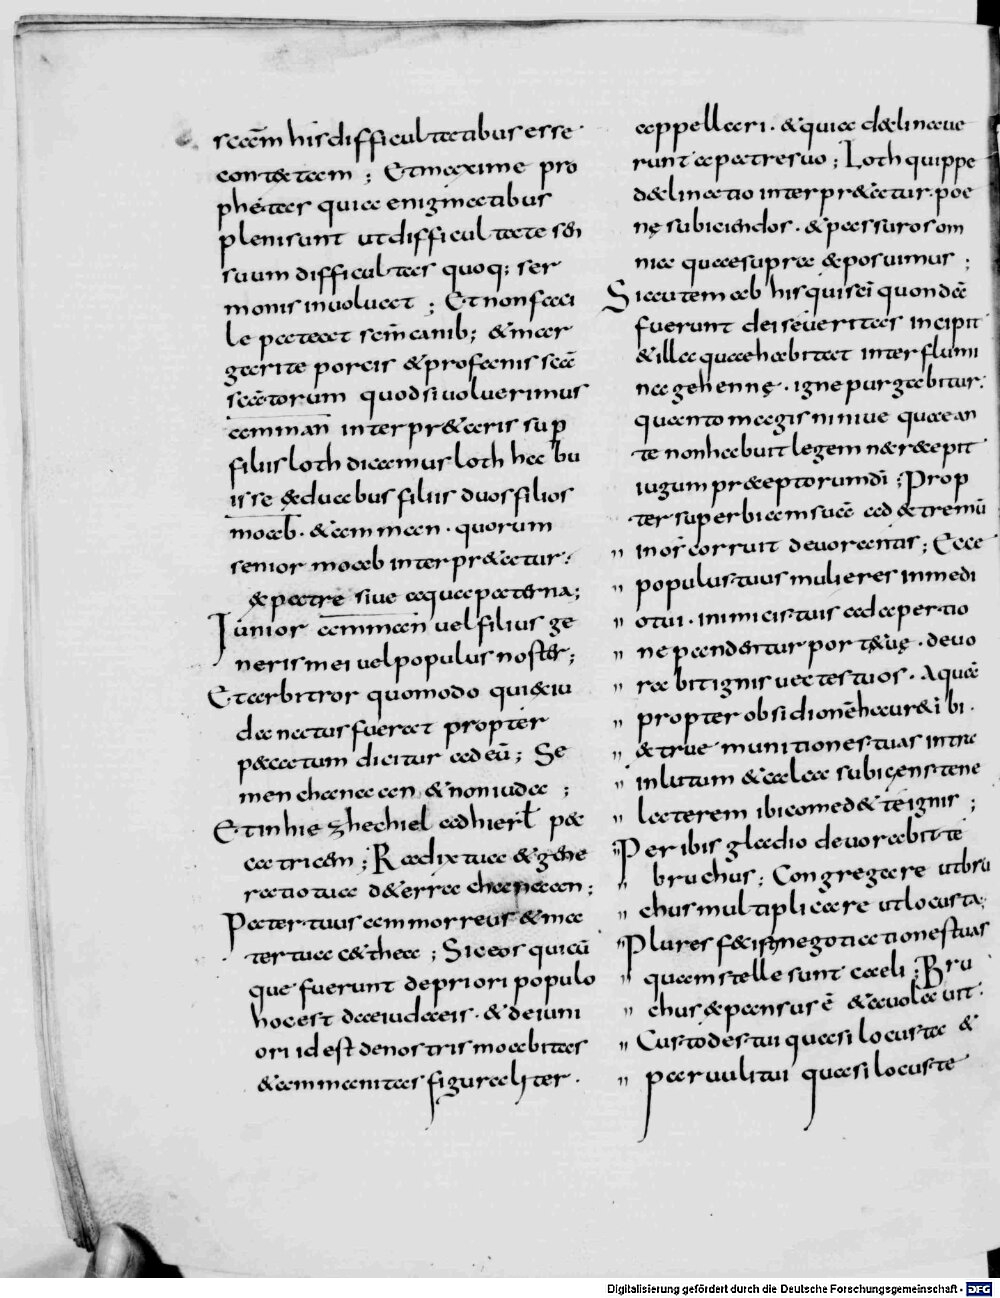 scām his difficultatibus esse
contextam ; Et maxime pro
phétas quia enigmatibus
pleni sunt ut difficultate sen
suum difficultas quoq; ser
monis inuoluat ; Et non faci
le pateat scm̄ canib; & mar
garite porcis & profanis scā
scātorum quod si uoluerimus
amman interpr&aris sup
filiis loth dicamus loth ha bu
isse & duabus filiis duos filios
moab · & amman · quorum
senior moab interpr&atur ·
ex patre siue aqua paterna;
Iunior amman uel filius ge
neris mei uel populus noster;
Et arbitror quomodo qui ex iu
da natus fuerat propter
peccatum dicitur ad eū ; Se
men chanaan & non iuda ;
Et in hiezhechiel ad hierl̄ pec
catricem ; Radix tua & gene
ratio tua de terra chanaan ;
Pater tuus ammorreus & ma
ter tua c&thea ; Sic eos quicū
que fuerunt de priori populo
hoc est de iudaeis · & de iuni
ori id est de nostris moabitas
& ammanitas figuraliter ·
appellari · & quia declinaue
runt a patre suo ; Loth quippe
declinatio interpr&atur · poe
nę subiciendos · & passuros om
nia quae supra exposuimus ;
Si autem ab his qui sc̄i quondā
fuerunt dei seueritas incipit
& illa quae habitat inter flumi
na gehennę · igne purgabitur ·
quanto magis niniue quae an
te non habuit legem nec recepit
iugum preceptorum dī ; Prop
ter superbiam suā ad extremū
" in or̄ corruit deuorantis ; Ecce
" populus tuus mulieres in medi
" o tui · inimicis tuis ad apertio
" ne pandentur portę tuę · deuo
" rabit ignis uectes tuos · Aquā
" propter obsidionē hauri tibi ·
" extrue munitiones tuas intra
" in lutum & calca subigens tene
" laterem ibi comed& te ignis ;
" Peribis gladio deuorabit te
" bruchus ; Congregare ut bru
" chus multiplicare ut locusta;
" Plures fecisti negotiationes tuas
" quam stelle sunt caeli ; Bru
" chus expansus ē & auolauit ·
" Custodes tui quasi locustae &
" paruuli tui quasi locuste
Digitalisierung gefördert durch die Deutsche Forschungsgemeinschaft - DFG